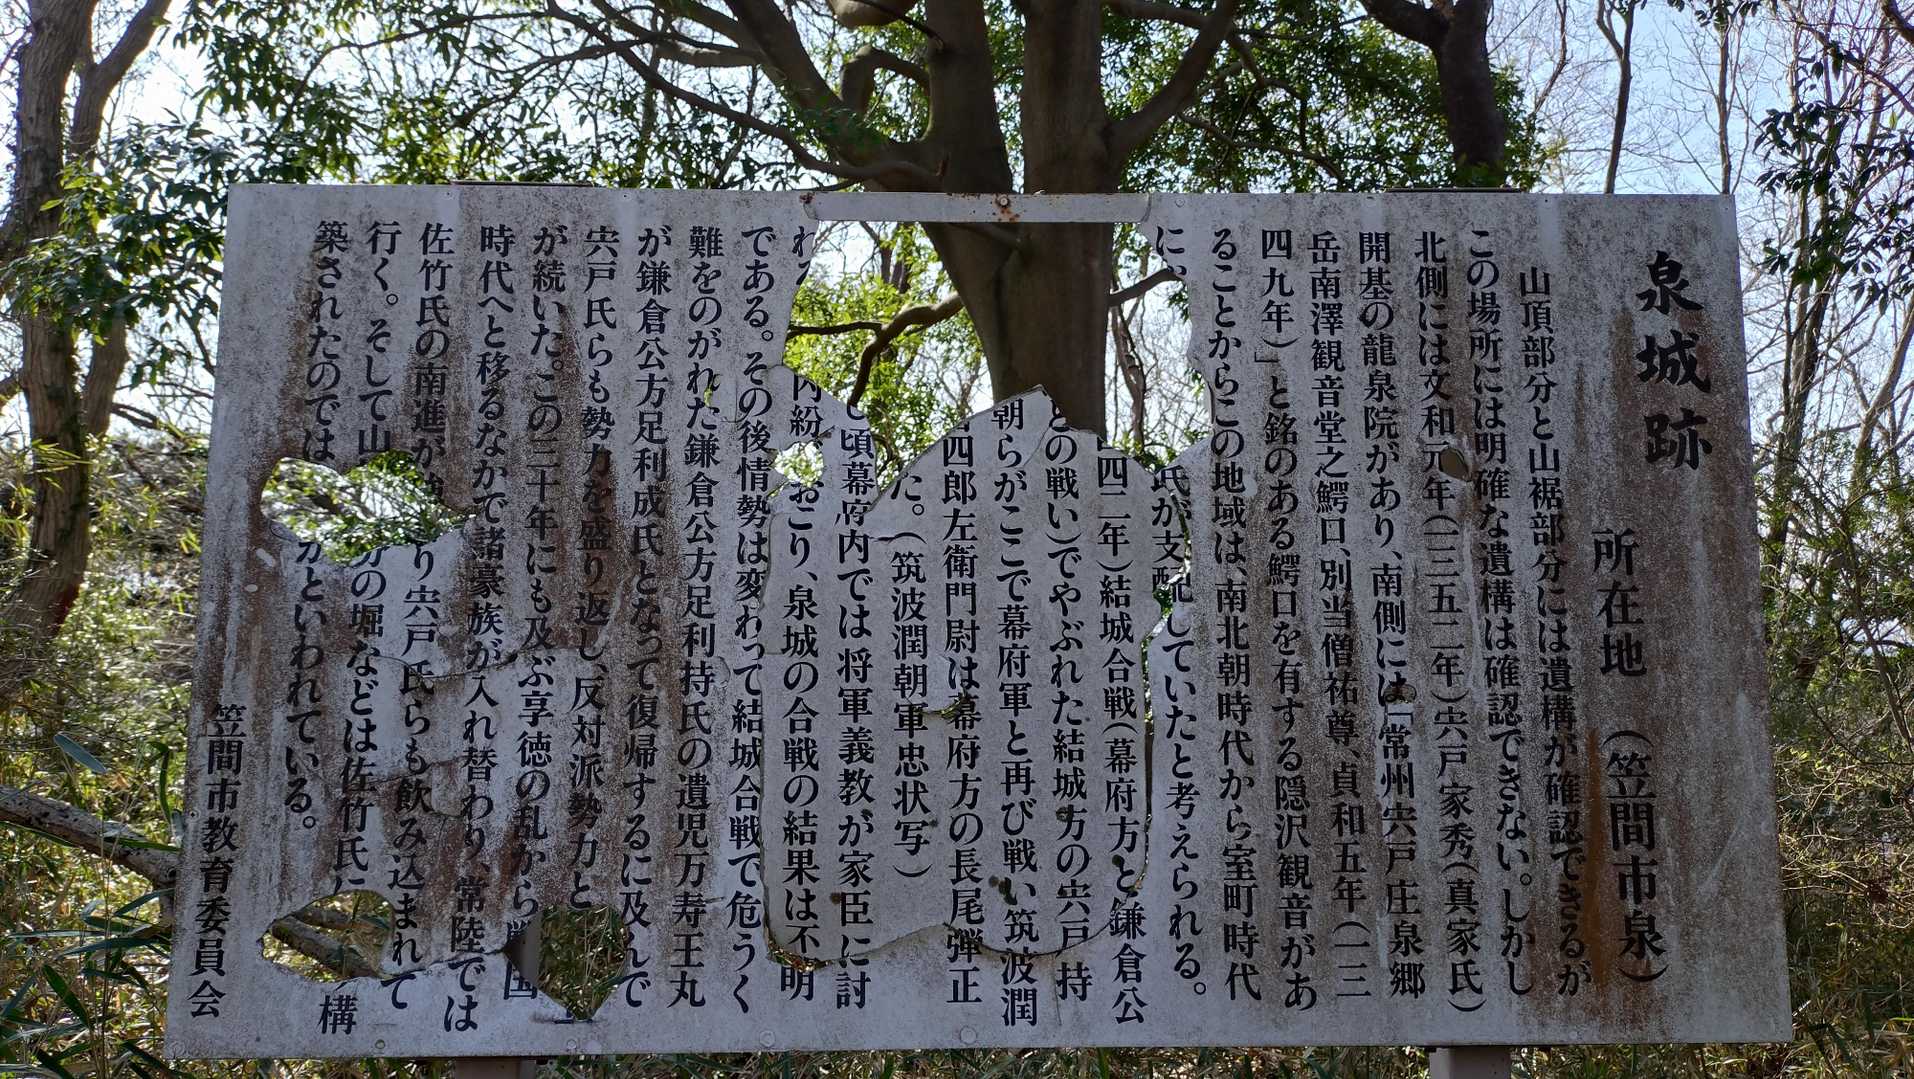 泉城跡
所在地(笠間市泉)
山頂部分と山裾部分には遺構が確認できるが
この場所には明確な遺構は確認できない。しかし
北側には文和元年(一三五二年)宍戸家秀(真家氏)
開基の龍泉院があり、南側には「常州宍戸庄泉郷
岳南澤観音堂之鰐口、別当僧祐尊、貞和五年(一三
四九年)」と銘のある鰐口を有する隠沢観音があ
ることからこの地域は、南北朝時代から室町時代
に 氏が支配していたと考えられる。
四二年)結城合戦(幕府方と鎌倉公
との戦い)でやぶれた結城方の宍戸持
朝らがここで幕府軍と再び戦い筑波潤
四郎左衛門尉は幕府方の長尾弾正
た。(筑波潤朝軍忠状写)
頃幕府内では将軍義教が家臣に討
れ 内紛 おこり、泉城の合戦の結果は不明
である。その後情勢は変わって結城合戦で危うく
難をのがれた鎌倉公方足利持氏の遺児万寿王丸
が鎌倉公方足利成氏となって復帰するに及んで
宍戸氏らも勢力を盛り返し、反対派勢力と
が続いた。この三十年にも及ぶ享徳の乱から戦国
時代へと移るなかで諸豪族が入れ替わり、常陸では
佐竹氏の南進が り宍戸氏らも飲み込まれて
行く。そして山 分の堀などは佐竹氏に 構
築されたのでは かといわれている。
笠間市教育委員会